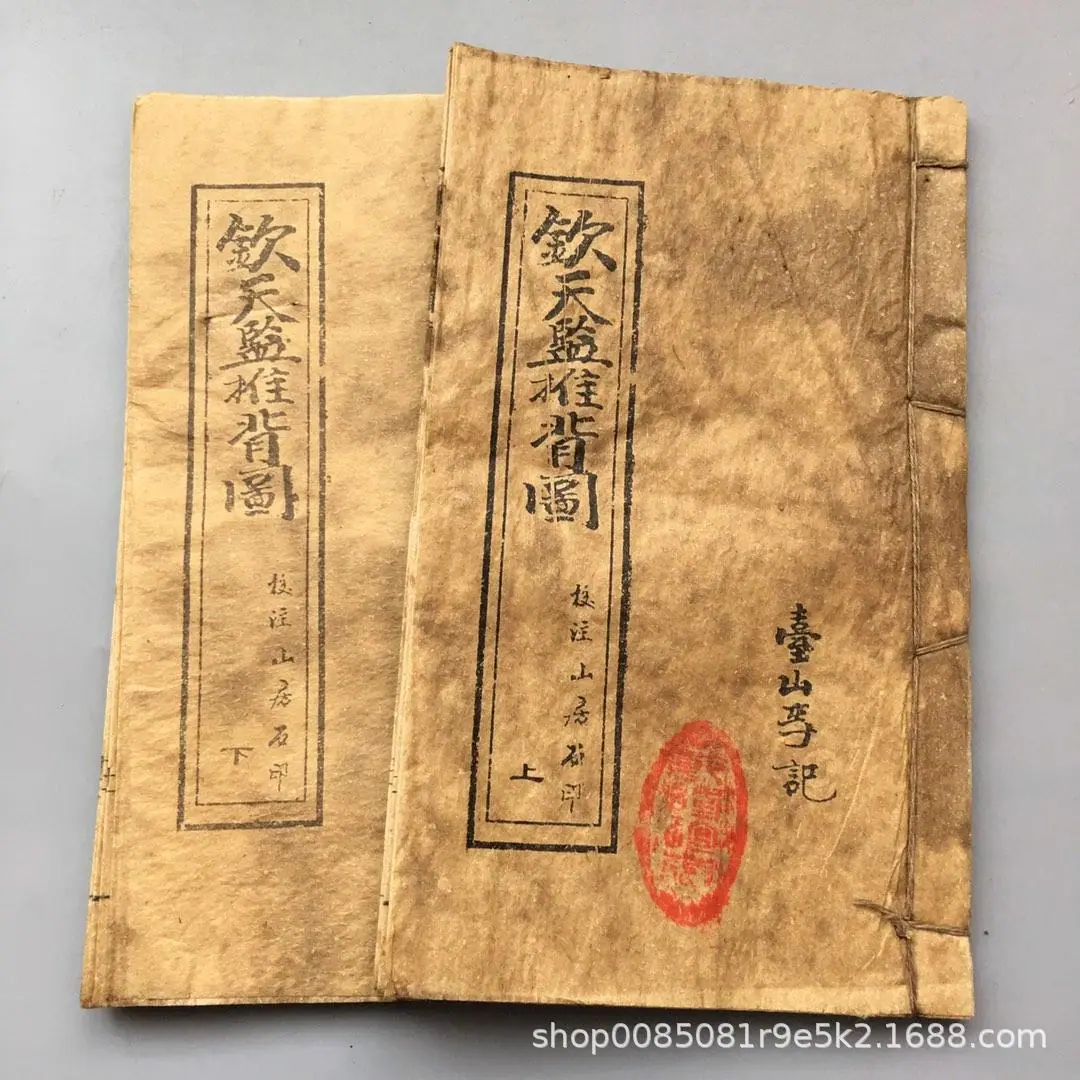 欽天監推背圖
校注山居石印
上
臺山李記
欽天監推背圖
校注山居石印
下
shop0085081r9e5k2.1688.com